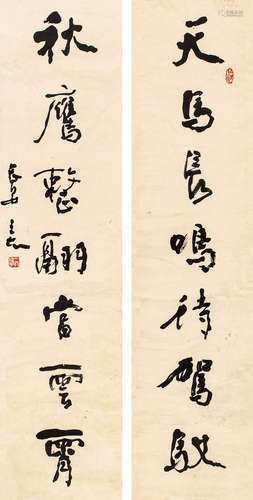 天馬長鳴待駕馭
秋鷹整翮當雲霄
長安